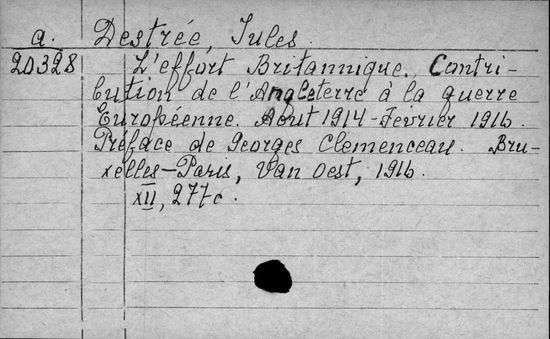 a. Destrée, Jules.
20328 L'effort Britannique. Contri-
bution de l'Angleterre à la guerre
Européenne. Aout 1914-Fevrier 1916.
Préface de Georges Clemenceau. Bru-
xelles-Paris, Van Oest, 1916.
XII, 277 c.